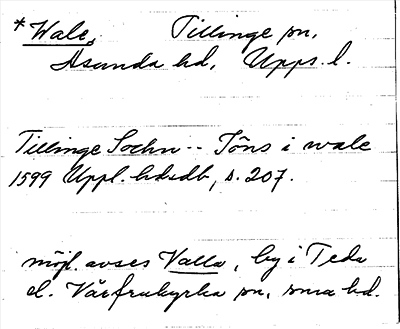 *Wale, Tillinge sn,
Åsunda hd, Upps. l.
Tillinge Sochn -- Jöns i wale
1599 Uppl. hdsdb, s. 207.
möjl. avses Valla, by i Teda
el. Vårfrukyrka sn, sma hd.